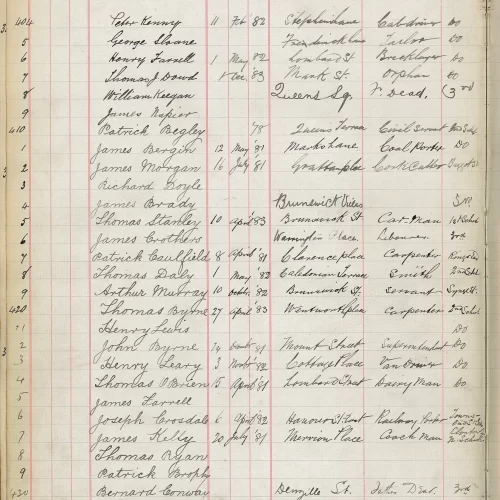 3. 404 Peter Kenny 11 Feb 82 Stephens Lane Cab driver Do
5 George Sloane Frederick Lane Tailor Do
6 Henry Farrell 1 May 82 Lombard St Bricklayer Do
7 Thomas J Dowd 8 Dec. 83 Mark St. Orphan Do
8 William Keegan Queens Sq. F. Dead. (3rd
9 James Napier
410 Patrick Begley 78 Queens Terrace Civil Servant
1 James Bergin 12 May 81 Marks Lane Coal Porter Do
3 2 James Morgan 16 July 81 Grattan place Cork Cutter
3 Richard Doyle
4 James Brady Brunswick Villas
5 Thomas Stanley 10 April 83 Brunswick St Car-Man
6 James Crothers Warrington Place. Labourer. 3rd
7 Patrick Caulfield 8 April 81 Clarence place Carpenter
8 Thomas Daly 1 May 82 Caledonian Terrace Smith
9 Arthur Murray 10 Octbr. 82 Brunswick St. Servant
420 Thomas Byrne 27 April 83 Wentworth place Carpenter
1 Henry Lewis Do
3 2 John Byrne 24 81 Mount Street Superintendent Do
3 Henry Leary 3 Novbr 82 Cottage Place Van Driver Do
4 Thomas O'Brien 15 April 81 Lombard Street Dairy Man Do
5 James Farrell
6 Joseph Crosdale 6 April 82 Hanover St East Railway Porter
7 James Kelly 20 July 81 Merrion Place Coach Man
8 Thomas Ryan
9 Patrick Brophy
430 Bernard Conway Denzille St. Father Dead. 3rd